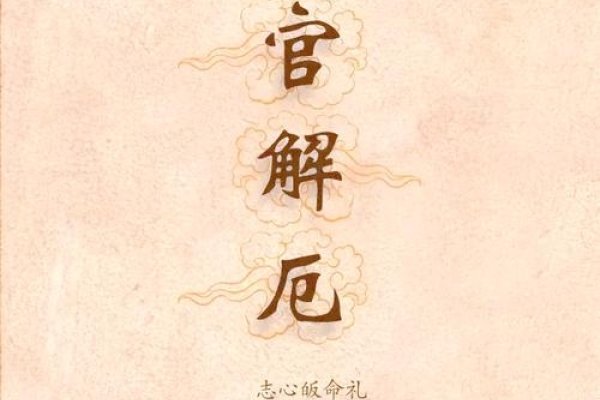 官解厄
志心皈命礼